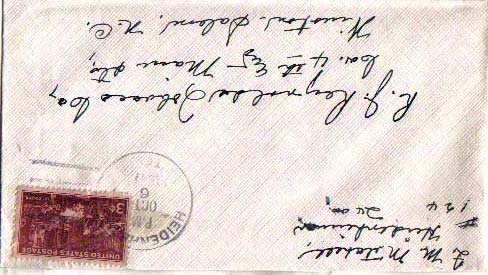 M. Mitchell
Heidenheimer
R. J. Reynolds Tobacco Co,
Cor. 4th & Main Sts,
Winston-Salem, N.C.
HEIDENH
OCT
6
P.M.
UNITED STATES POSTAGE
3¢